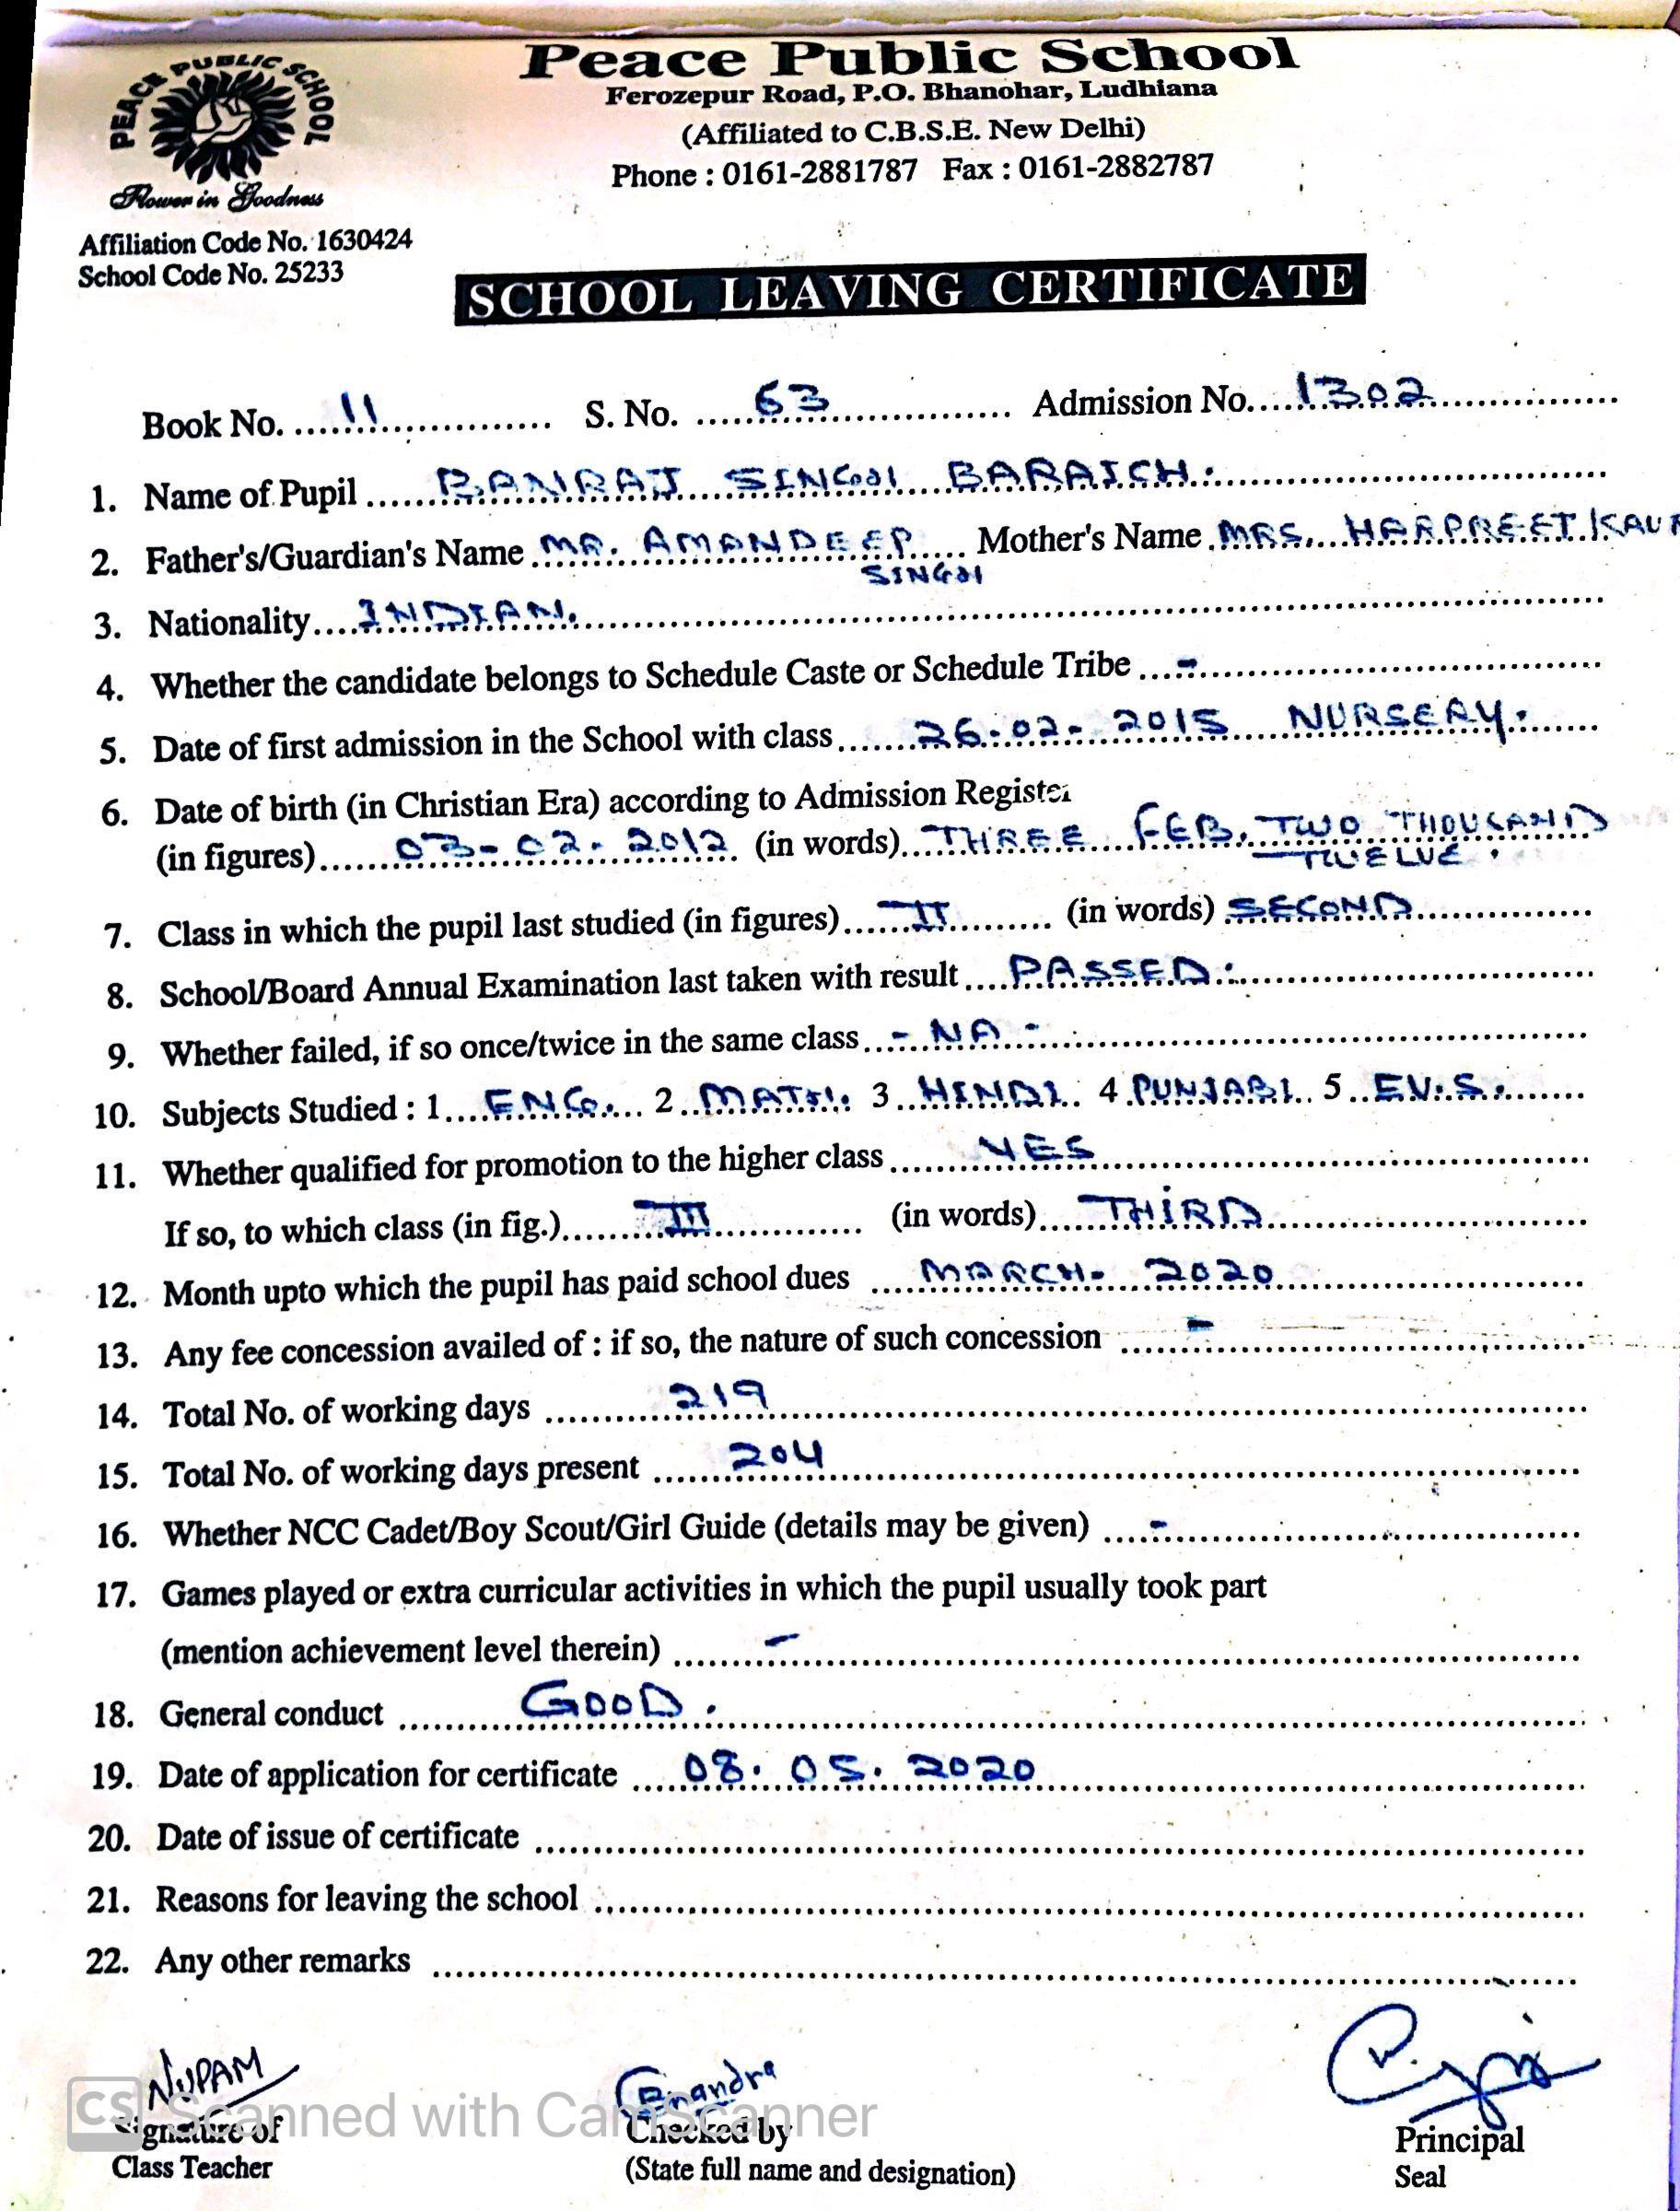 PEACE PUBLIC SCHOOL
Flower in Goodness
Affiliation Code No. 1630424
School Code No. 25233
Peace Public School
Ferozepur Road, P.O. Bhanohar, Ludhiana
(Affiliated to C.B.S.E. New Delhi)
Phone : 0161-2881787 Fax : 0161-2882787
SCHOOL LEAVING CERTIFICATE
Book No. 11 S. No. 63 Admission No. 1302
1. Name of Pupil BANRAJ SINGH BARAICH.
2. Father's/Guardian's Name MR. AMANDEEP Mother's Name MRS. HARPREET KAUR
SINGH
3. Nationality INDIAN.
4. Whether the candidate belongs to Schedule Caste or Schedule Tribe -
5. Date of first admission in the School with class 26-02-2015 NURSERY.
6. Date of birth (in Christian Era) according to Admission Register
(in figures) 03-02-2012 (in words) THREE FEB. TWO THOUSAND
TWELVE.
7. Class in which the pupil last studied (in figures) II (in words) SECOND
8. School/Board Annual Examination last taken with result PASSED.
9. Whether failed, if so once/twice in the same class - NA -
10. Subjects Studied : 1 ENG. 2 MATH. 3 HINDI. 4 PUNJABI. 5 EV.S.
11. Whether qualified for promotion to the higher class YES
If so, to which class (in fig.) III (in words) THIRD
12. Month upto which the pupil has paid school dues MARCH- 2020
13. Any fee concession availed of : if so, the nature of such concession -
14. Total No. of working days 219
15. Total No. of working days present 204
16. Whether NCC Cadet/Boy Scout/Girl Guide (details may be given) -
17. Games played or extra curricular activities in which the pupil usually took part
(mention achievement level therein) -
18. General conduct GOOD.
19. Date of application for certificate 08.05.2020
20. Date of issue of certificate
21. Reasons for leaving the school
22. Any other remarks
NUPAM
CS Scanned with CamScanner
Signature of Checked by Principal
Class Teacher (State full name and designation) Seal